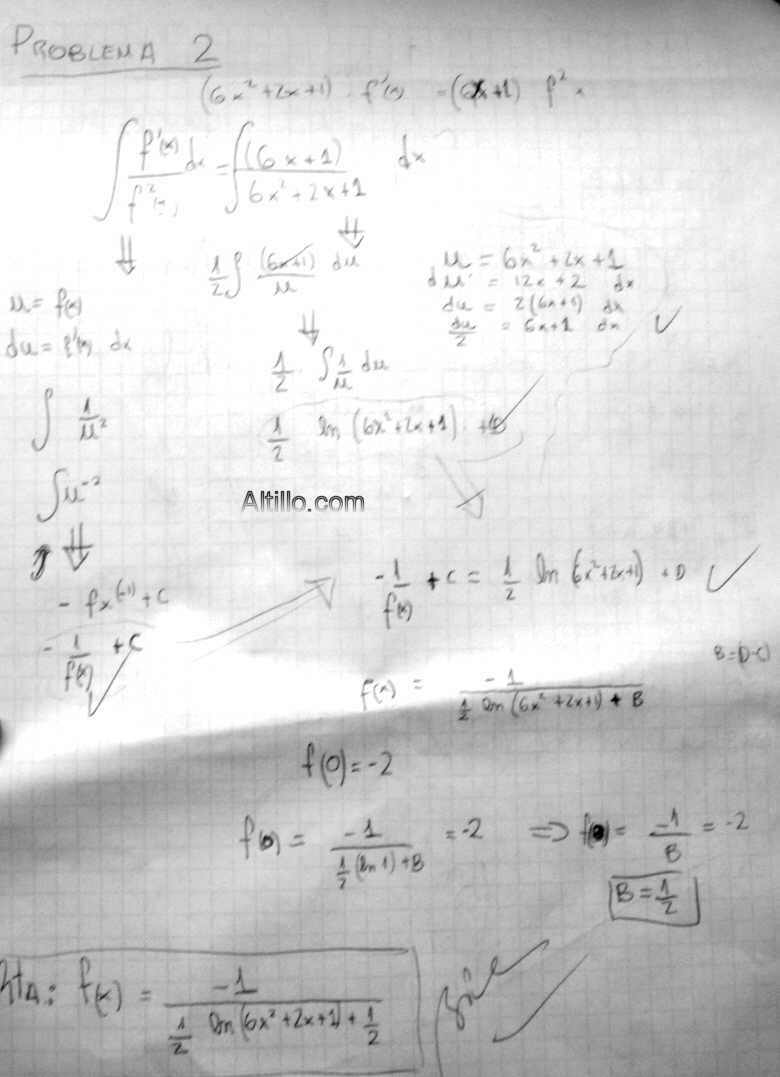 PROBLEMA 2
(6x²+2x+1) · f'(x) = (6x+1) f² x
∫ f'(x)/f²(x) dx = ∫ (6x+1)/(6x²+2x+1) dx
⇓ ⇓
1/2 ∫ (6x+1)/u du
u = 6x²+2x+1
du = 12x+2 dx
du = 2(6x+1) dx
du/2 = 6x+1 dx ✓
u = f(x)
du = f'(x) dx
⇓
1/2 · ∫ 1/u du
∫ 1/u²
1/2 ln (6x²+2x+1) · +D
∫ u⁻²
Altillo.com
⇓
- fx⁽⁻¹⁾ + C
- 1/f(x) + C
- 1/f(x) + C = 1/2 ln (6x²+2x+1) + D ✓
B = (D-C)
f(x) = -1/(1/2 ln (6x²+2x+1) + B
f(0) = -2
f(0) = -1/(1/2 (ln 1) + B) = -2 ⇒ f(0) = -1/B = -2
B = 1/2
RtA: f(x) = -1/(1/2 ln (6x²+2x+1) + 1/2)